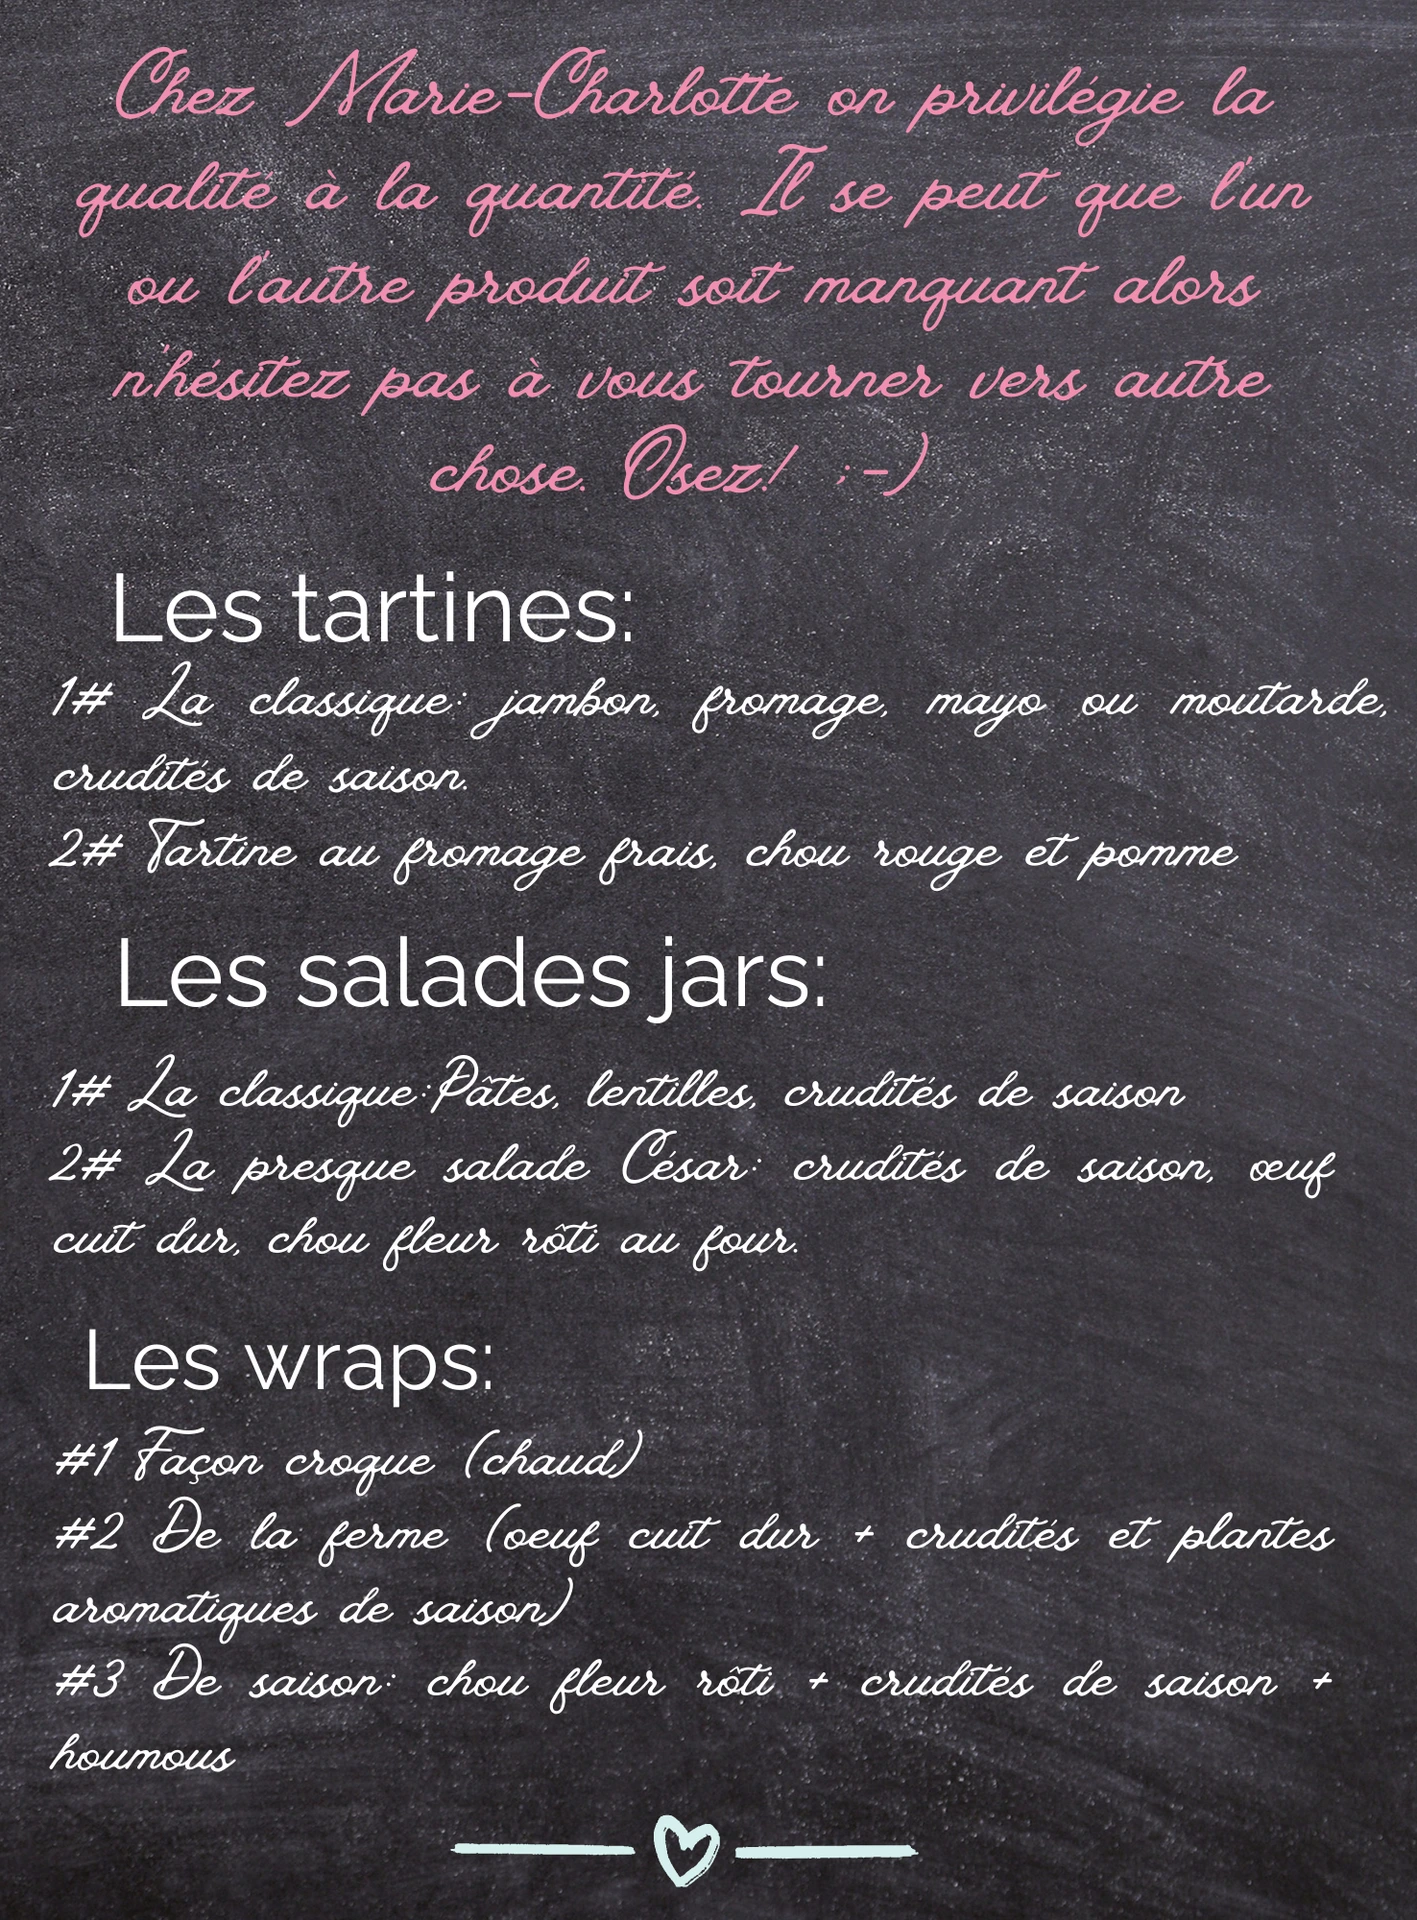 Chez Marie-Charlotte on privilégie la
qualité à la quantité. Il se peut que l'un
ou l'autre produit soit manquant alors
n'hésitez pas à vous tourner vers autre
chose. Osez! ;-)
Les tartines:
1# La classique: jambon, fromage, mayo ou moutarde,
crudités de saison.
2# Tartine au fromage frais, chou rouge et pomme
Les salades jars:
1# La classique:Pâtes, lentilles, crudités de saison
2# La presque salade César: crudités de saison, œuf
cuit dur, chou fleur rôti au four.
Les wraps:
#1 Façon croque (chaud)
#2 De la ferme (oeuf cuit dur + crudités et plantes
aromatiques de saison)
#3 De saison: chou fleur rôti + crudités de saison +
houmous